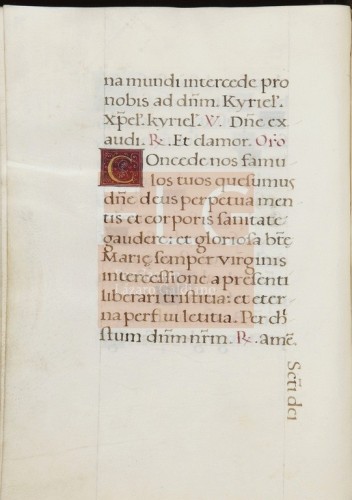 na mundi intercede pro
nobis ad dn̄m. Kyriel'.
Xp̄el'. kyriel'. V. Dn̄e ex
audi. R. Et clamor. Oro
Concede nos famu
los tuos quesumus
dn̄e deus perpetua men
tis et corporis sanitate
gaudere: et gloriosa btē
Marię semper virginis
intercessione a presenti
liberari tristitia: et eter
na perfrui letitia. Per ch̄r
stum dn̄m nr̄m. R. amē.
Sctī dei